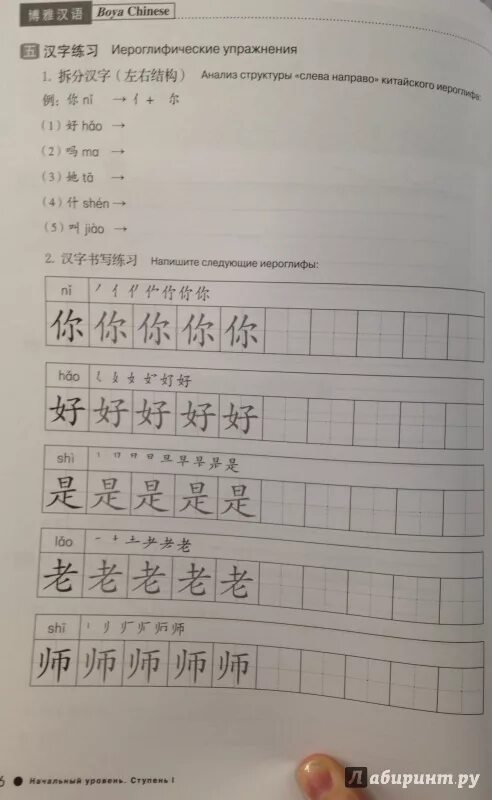 博雅汉语 Boya Chinese
五 汉字练习 Иероглифические упражнения
1. 拆分汉字（左右结构） Анализ структуры «слева направо» китайского иероглифа:
例：你 nǐ → 亻 + 尔
(1) 好 hǎo →
(2) 吗 ma →
(3) 她 tā →
(4) 什 shén →
(5) 叫 jiào →
2. 汉字书写练习 Напишите следующие иероглифы:
nǐ
你 你 你 你 你
hǎo
好 好 好 好 好
shì
是 是 是 是 是
lǎo
老 老 老 老 老
shī
师 师 师 师 师
6 ● Начальный уровень. Ступень I
Лабиринт.ру